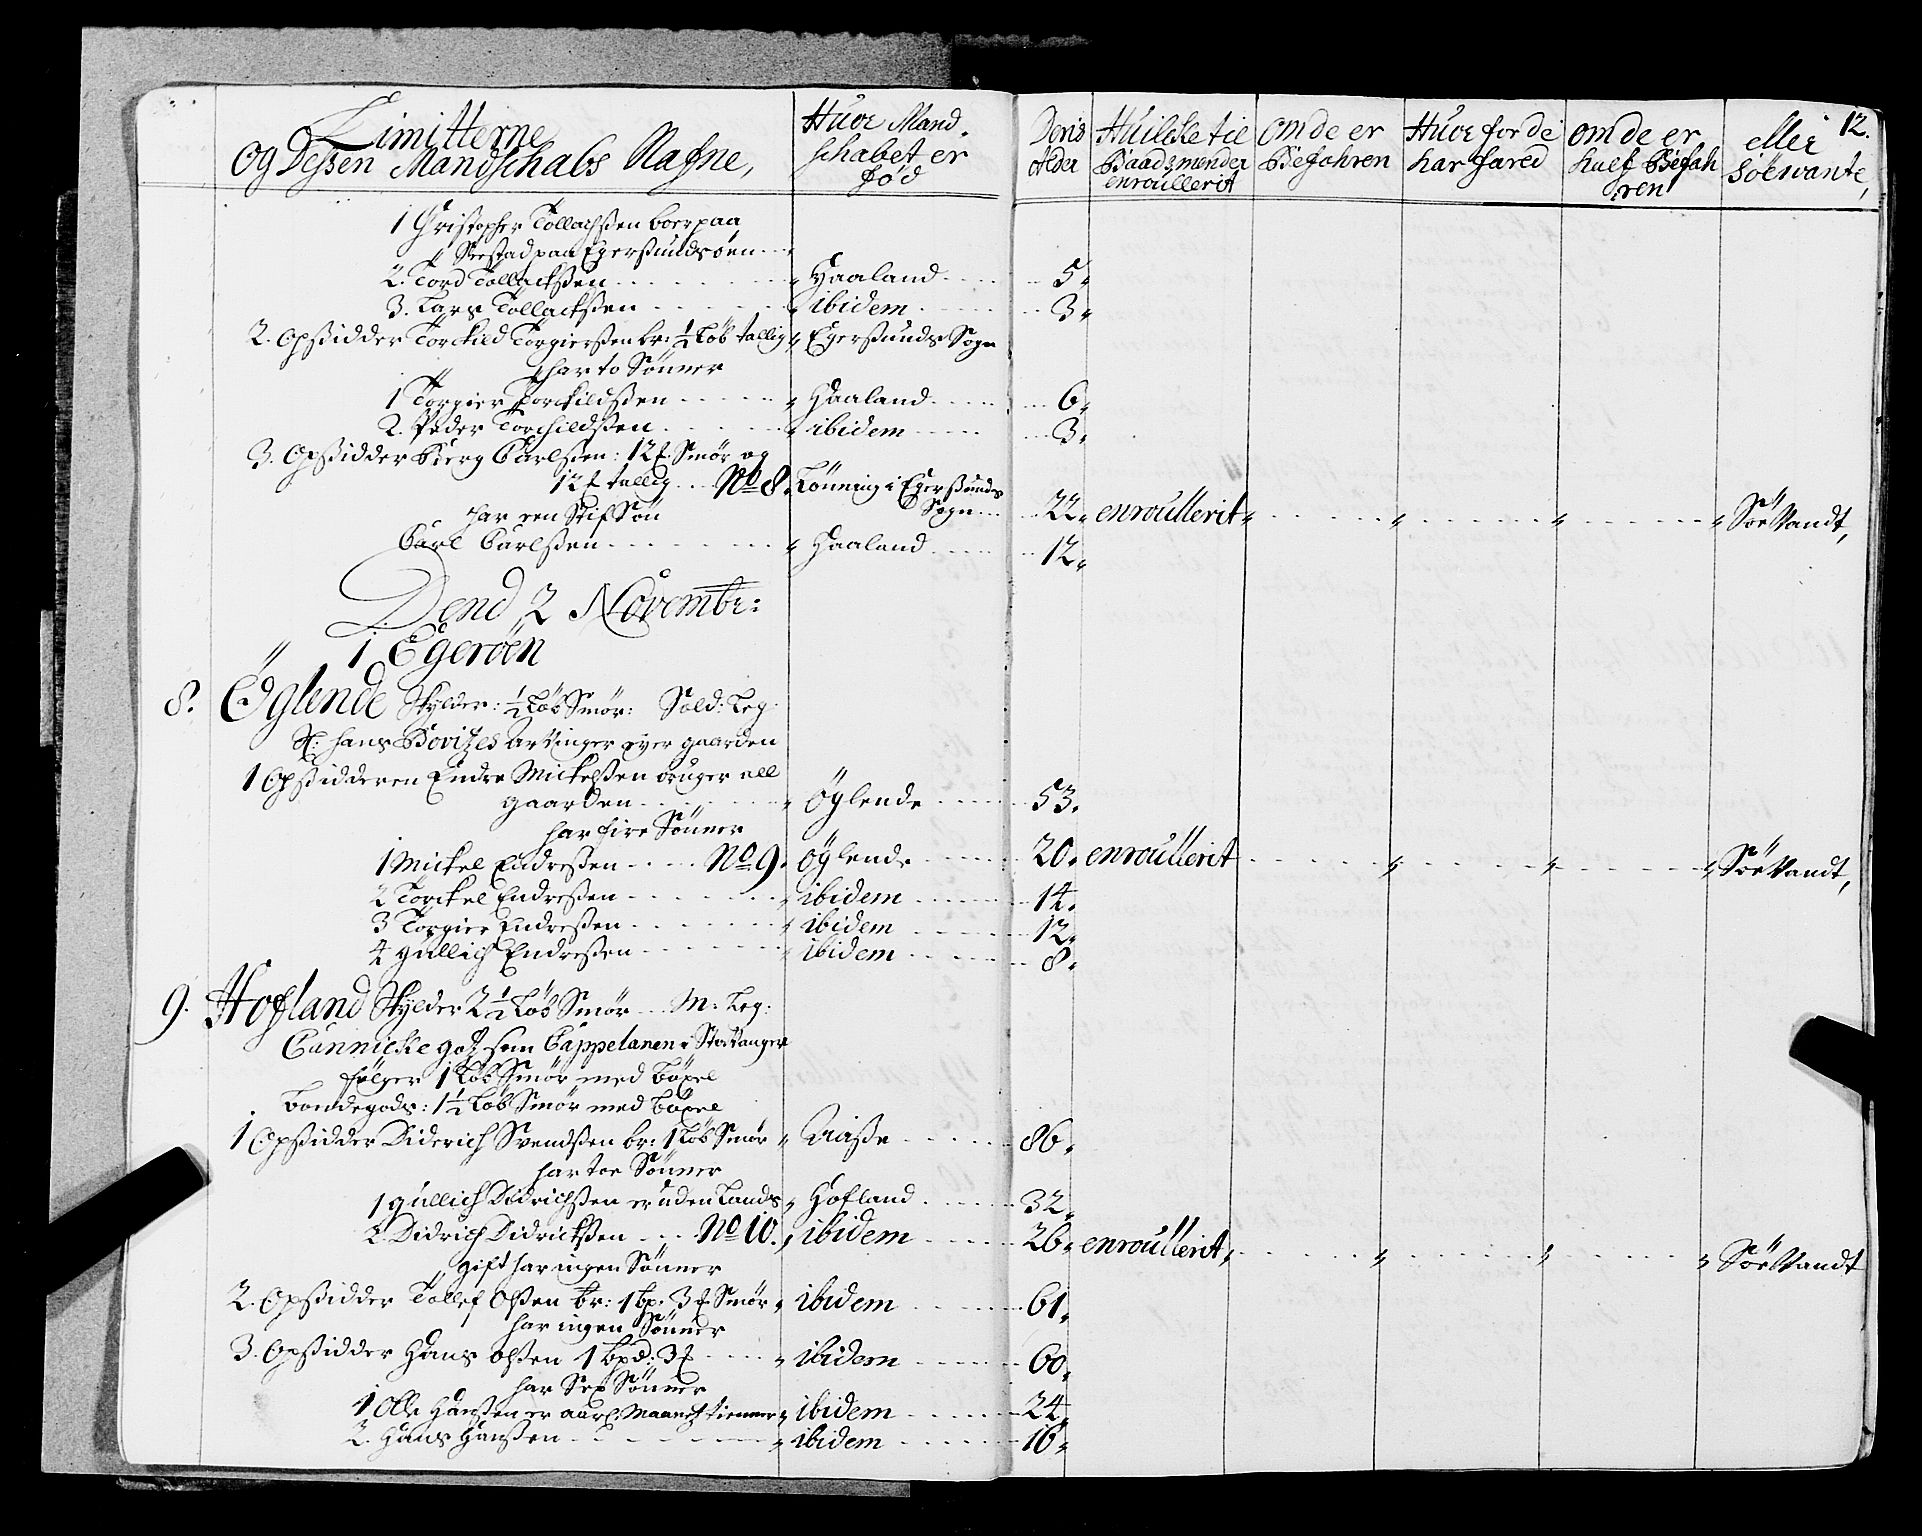 12.
Limitterne
Og Dessen Mandschabs Nafne,
Huor Mand-
schabet er
fød
Deris
Alder
Huilche til
Baadsmender
enroullerit
Om de er
Befahren
Huor for de
har fared
om de er
half Befah
ren
eller
Søevante,
1 Christopher Tollachssen boer paa
Skestad paa Egerssundsøen
2. Tord Tollachssen „ Haaland 5„
3. Lars Tollachssen „ ibidem 3„
2. Opssidder Torckild Torgierssen br: ½ Løb tallig „ Egerssunds Sogn
har to Sønner
1 Torgier Torckildssen „ Haaland 6„
2. Peder Torchildssen „ ibidem 3„
3. Opssidder Bierg Carlssen: 12 f Smør og
12 f tallig No 8. Lønning i Egerssunds
Sogn 22„ enroullerit „ „ „ „ SøeVandt,
har een Stif Søn
Carl Carlssen „ Haaland 12„
Dend 2 Novembr:
i Egerøen
8. Øglende Skylder: ½ Løb Smør: Sold: Leg.
Sl: Hans Bovitzes Arvinger eyer gaarden
1 Opssidderen Endre Mickelssen bruger all
gaarden „ Øglende 53.
har fire Sønner
1 Mickel Endressen No 9. Øglende 20„ enroullerit „ „ „ SøeVandt,
2 Torckel Endressen „ ibidem 14.
3 Torgier Endressen „ ibidem 12„
4 Gullich Endressen „ ibidem 8„
9. Hofland Skylder 2½ Løb Smør M: Leg:
Cannicke gotz som Cappelanen i Stavanger
følger 1 Løb Smør med bøxel
Bondegods: 1½ Løb Smør med bøxel
1 Opssidder Diderich Svendssen br: 1 Løb Smør „ 86„
har toe Sønner
1 Gullich Didrichssen er uden Lands „ Hofland 32„
2. Didrich Didrichssen No 10. „ ibidem 26„ enroullerit „ „ „ „ SøeVandt
Gift har ingen Sønner
2. Opssidder Tollef Olssen br: 1 bp: 3 f Smør „ ibidem 61„
har ingen Sønner
3. Opssidder Hans Olssen 1 bpd: 3 f „ ibidem 60„
har Sex Sønner
1 Olle Hanssen er aarl: Maanetz tienner „ ibidem 24„
2. Hans Hanssen „ ibidem 16„